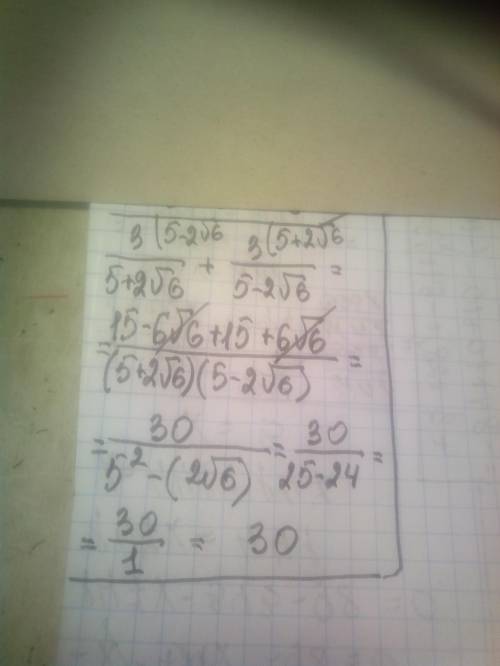 3 (5-2√6 3 (5+2√6
5+2√6 + 5-2√6 =
= 15-6√6+15+6√6
(5+2√6)(5-2√6) =
= 30 = 30 =
5² - (2√6) 25-24
= 30 = 30
1